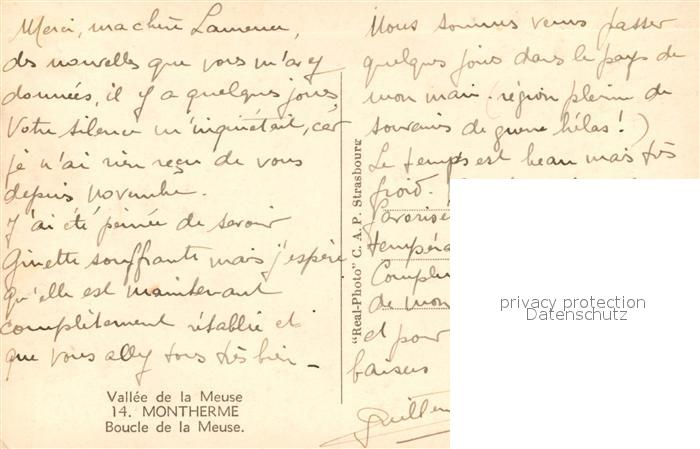 Merci, ma chère
des nouvelles que vous m'avez
données, il y a quelques jours,
Votre silence m'inquiétait, car
je n'ai rien reçu de vous
depuis novembre.
J'ai été peinée de savoir
Ginette souffrante mais j'espère
qu'elle est maintenant
complètement rétablie et
que vous allez tous très bien _
Vallée de la Meuse
14. MONTHERME
Boucle de la Meuse.
"Real-Photo" C. A. P. Strasbourg
Nous sommes venus passer
quelques jours dans le pays de
mon mari (région pleine de
souvenirs de guerre hélas!)
Le temps est beau mais très
froid.
favorisé
tempéra
Complim
de mon
et pour
baisers
Guillem
privacy protection
Datenschutz